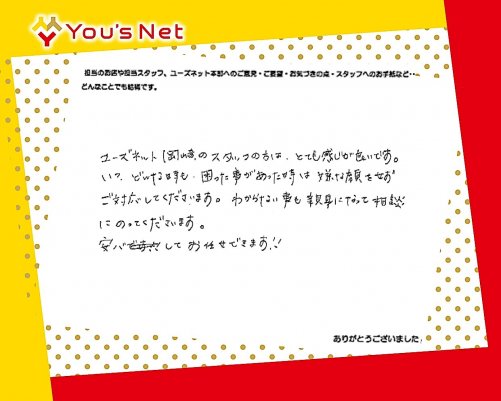 You's Net
担当のお店や担当スタッフ、ユーズネット本部へのご意見・ご要望・お気づきの点・スタッフへのお手紙など…
どんなことでも結構です。
ユーズネット岡崎のスタッフの方は、とても感じが良いです。
いつ、どんな時も、困った事があった時は嫌な顔もせず
ご対応してくださいます。わからない事も親身になって相談
にのってくださいます。
安心してお任せできます!!
ありがとうございました